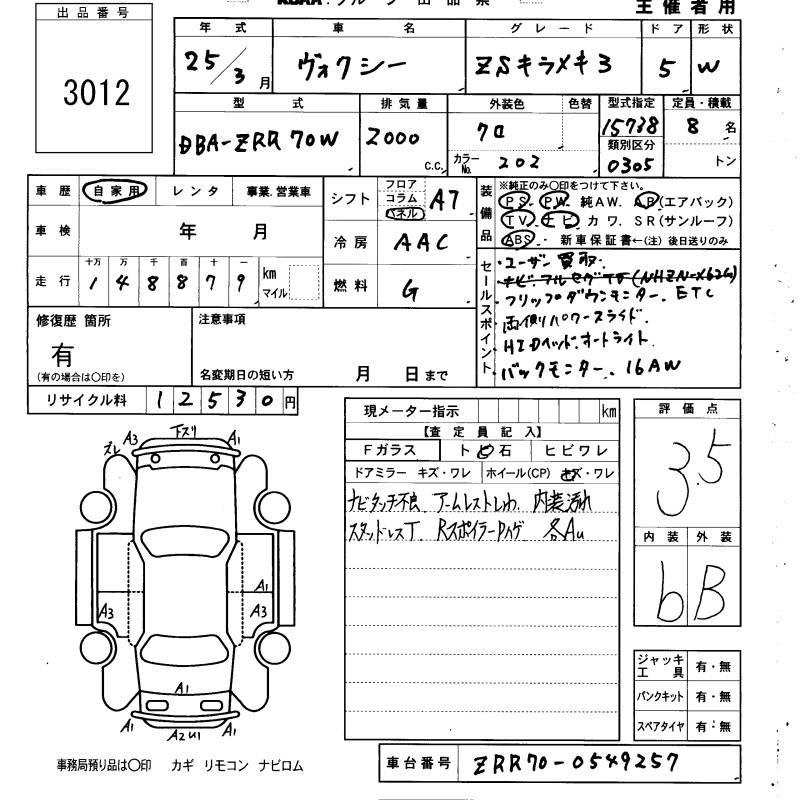 出品番号
3012
主催者用
年式 車名 グレード ドア 形状
25/3月 ヴォクシー ZSキラメキ3 5 W
型式 排気量 外装色 色替 型式指定 定員・積載
DBA-ZRR70W 2000 c.c. クロ 15738 8名
カラーNo. 202 類別区分 0305 トン
車歴 自家用 レンタ 事業.営業車
車検 年 月
走行 十万 万 千 百 十 一
148879 km マイル
シフト フロア コラム パネル A7
冷房 AAC
燃料 G
装備品
※純正のみ〇印をつけて下さい。
PS. PW. 純AW. AB(エアバック)
TV. ナビ カワ. SR(サンルーフ)
ABS. 新車保証書←(注) 後日送りのみ
セールスポイント
・ユーザー買取
・ナビ・フルセグTV(NHZN-X62G)
・フリップダウンモニター. ETC
両側パワースライド.
HIDヘッド.オートライト
バックモニター. 16AW
修復歴 箇所
有
(有の場合は〇印を)
注意事項
名変期日の短い方 月 日まで
リサイクル料 12530円
現メーター指示 km
【査定員記入】
Fガラス ト ビ 石 ヒビワレ
ドアミラー キズ・ワレ ホイール(CP) キズ・ワレ
ナビタッチ不良 アームレストしわ 内装汚れ
スタッドレスT Rスポイラーハゲ 各Au
評価点
3.5
内装 外装
b B
ズレ A3 下スリ A1
A1
A3 A3
A1
A1 A2U1 A1
ジャッキ工具 有・無
パンクキット 有・無
スペアタイヤ 有・無
事務局預り品は〇印 カギ リモコン ナビロム
車台番号 ZRR70-0549257